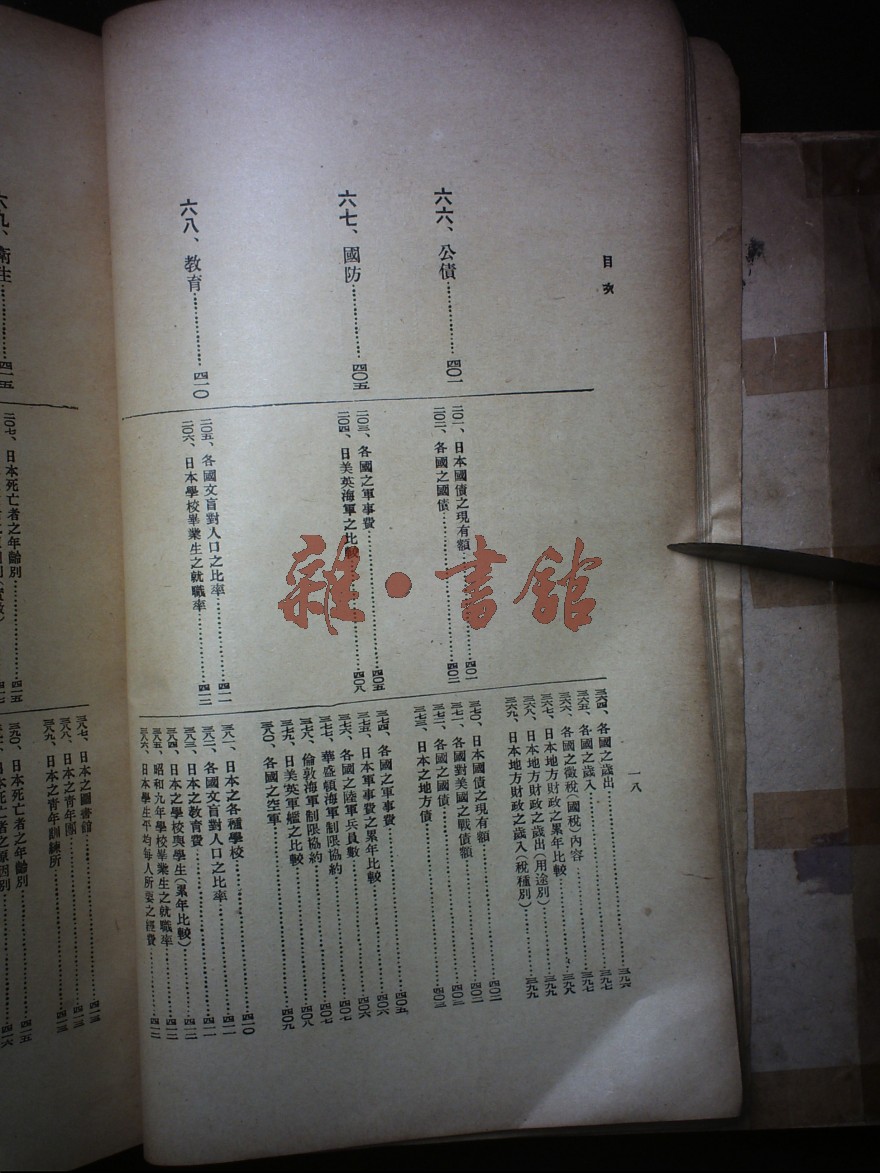 目次
一八
六六、公債……………四〇一
六七、國防……………四〇五
六八、教育……………四一〇
二〇一、日本國債之現有額……………四〇一
二〇二、各國之國債……………四〇二
二〇三、各國之軍事費……………四〇五
二〇四、日美英海軍之比較……………四〇八
二〇五、各國文盲對人口之比率……………四一一
二〇六、日本學校畢業生之就職率……………四一二
三六四、各國之歲出……………三九六
三六五、各國之歲入……………三九七
三六六、各國之徵稅(國稅)內容……………三九八
三六七、日本地方財政之累年比較……………三九九
三六八、日本地方財政之歲出(用途別)……………三九九
三六九、日本地方財政之歲入(稅種別)……………三九九
三七〇、日本國債之現有額……………四〇二
三七一、各國對美國之戰債額……………四〇三
三七二、各國之國債……………四〇三
三七三、日本之地方債……………四〇三
三七四、各國之軍事費……………四〇五
三七五、日本軍事費之累年比較……………四〇六
三七六、各國之陸軍兵員數……………四〇六
三七七、華盛頓海軍制限協約……………四〇七
三七八、倫敦海軍制限協約……………四〇七
三七九、日美英軍艦之比較……………四〇八
三八〇、各國之空軍……………四〇九
三八一、日本之各種學校……………四一〇
三八二、各國文盲對人口之比率……………四一一
三八三、日本之教育費……………四一一
三八四、日本之學校與學生(累年比較)……………四一二
三八五、昭和九年學校畢業生之就職率……………四一二
三八六、日本學生平均每人所要之經費……………四一二
六九、衛生……………四一五
二〇七、日本死亡者之年齡別……………四一五
三八七、日本之圖書館……………四一三
三八八、日本之青年團……………四一三
三八九、日本之青年訓練所……………四一三
三九〇、日本死亡者之年齡別……………四一五
雜·書館